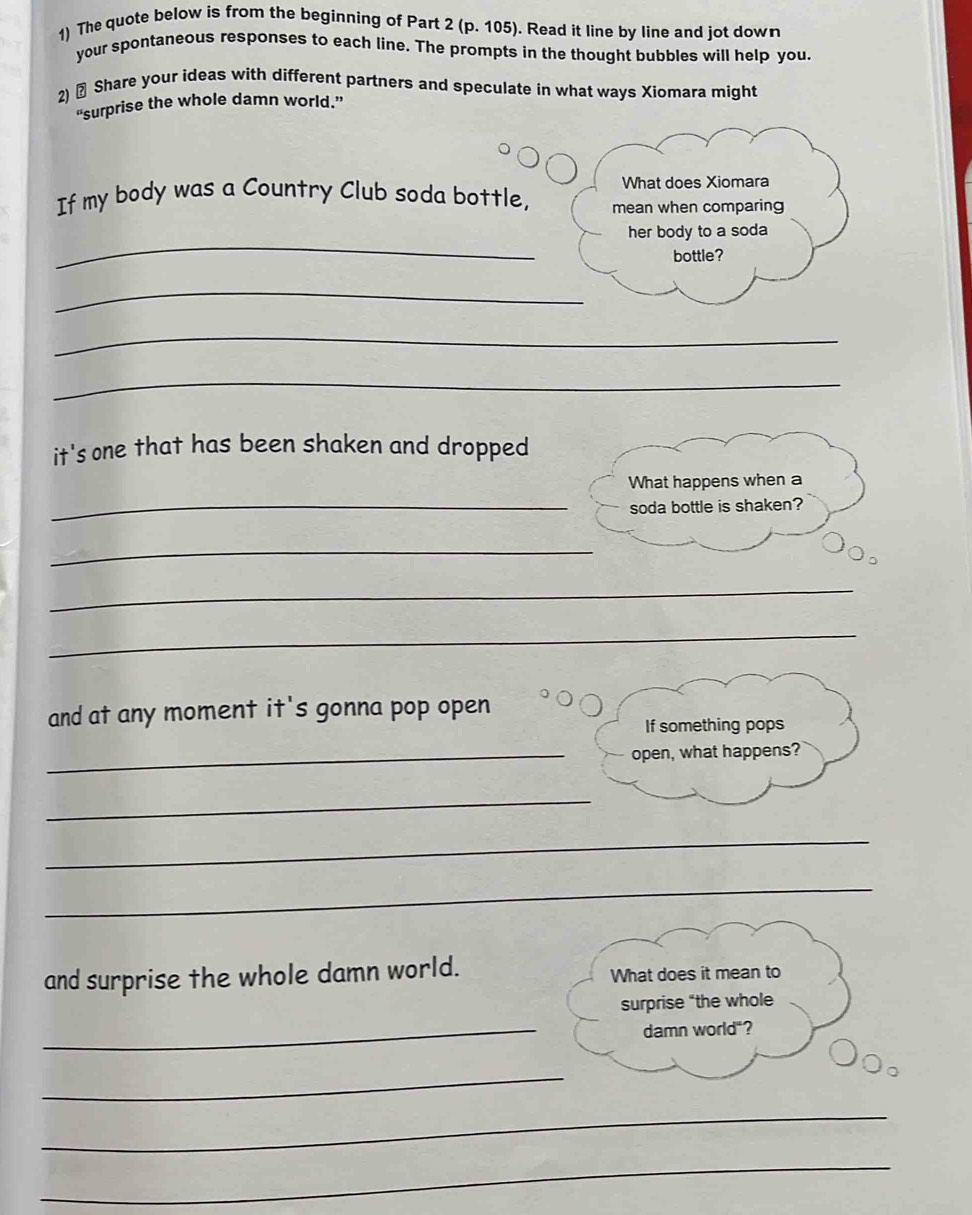 1) The quote below is from the beginning of Part 2 (p. 105). Read it line by line and jot down
your spontaneous responses to each line. The prompts in the thought bubbles will help you.
2) Share your ideas with different partners and speculate in what ways Xiomara might
“surprise the whole damn world.”
If my body was a Country Club soda bottle,
What does Xiomara
mean when comparing
her body to a soda
bottle?
it's one that has been shaken and dropped
What happens when a
soda bottle is shaken?
and at any moment it's gonna pop open
If something pops
open, what happens?
and surprise the whole damn world.
What does it mean to
surprise “the whole
damn world“?